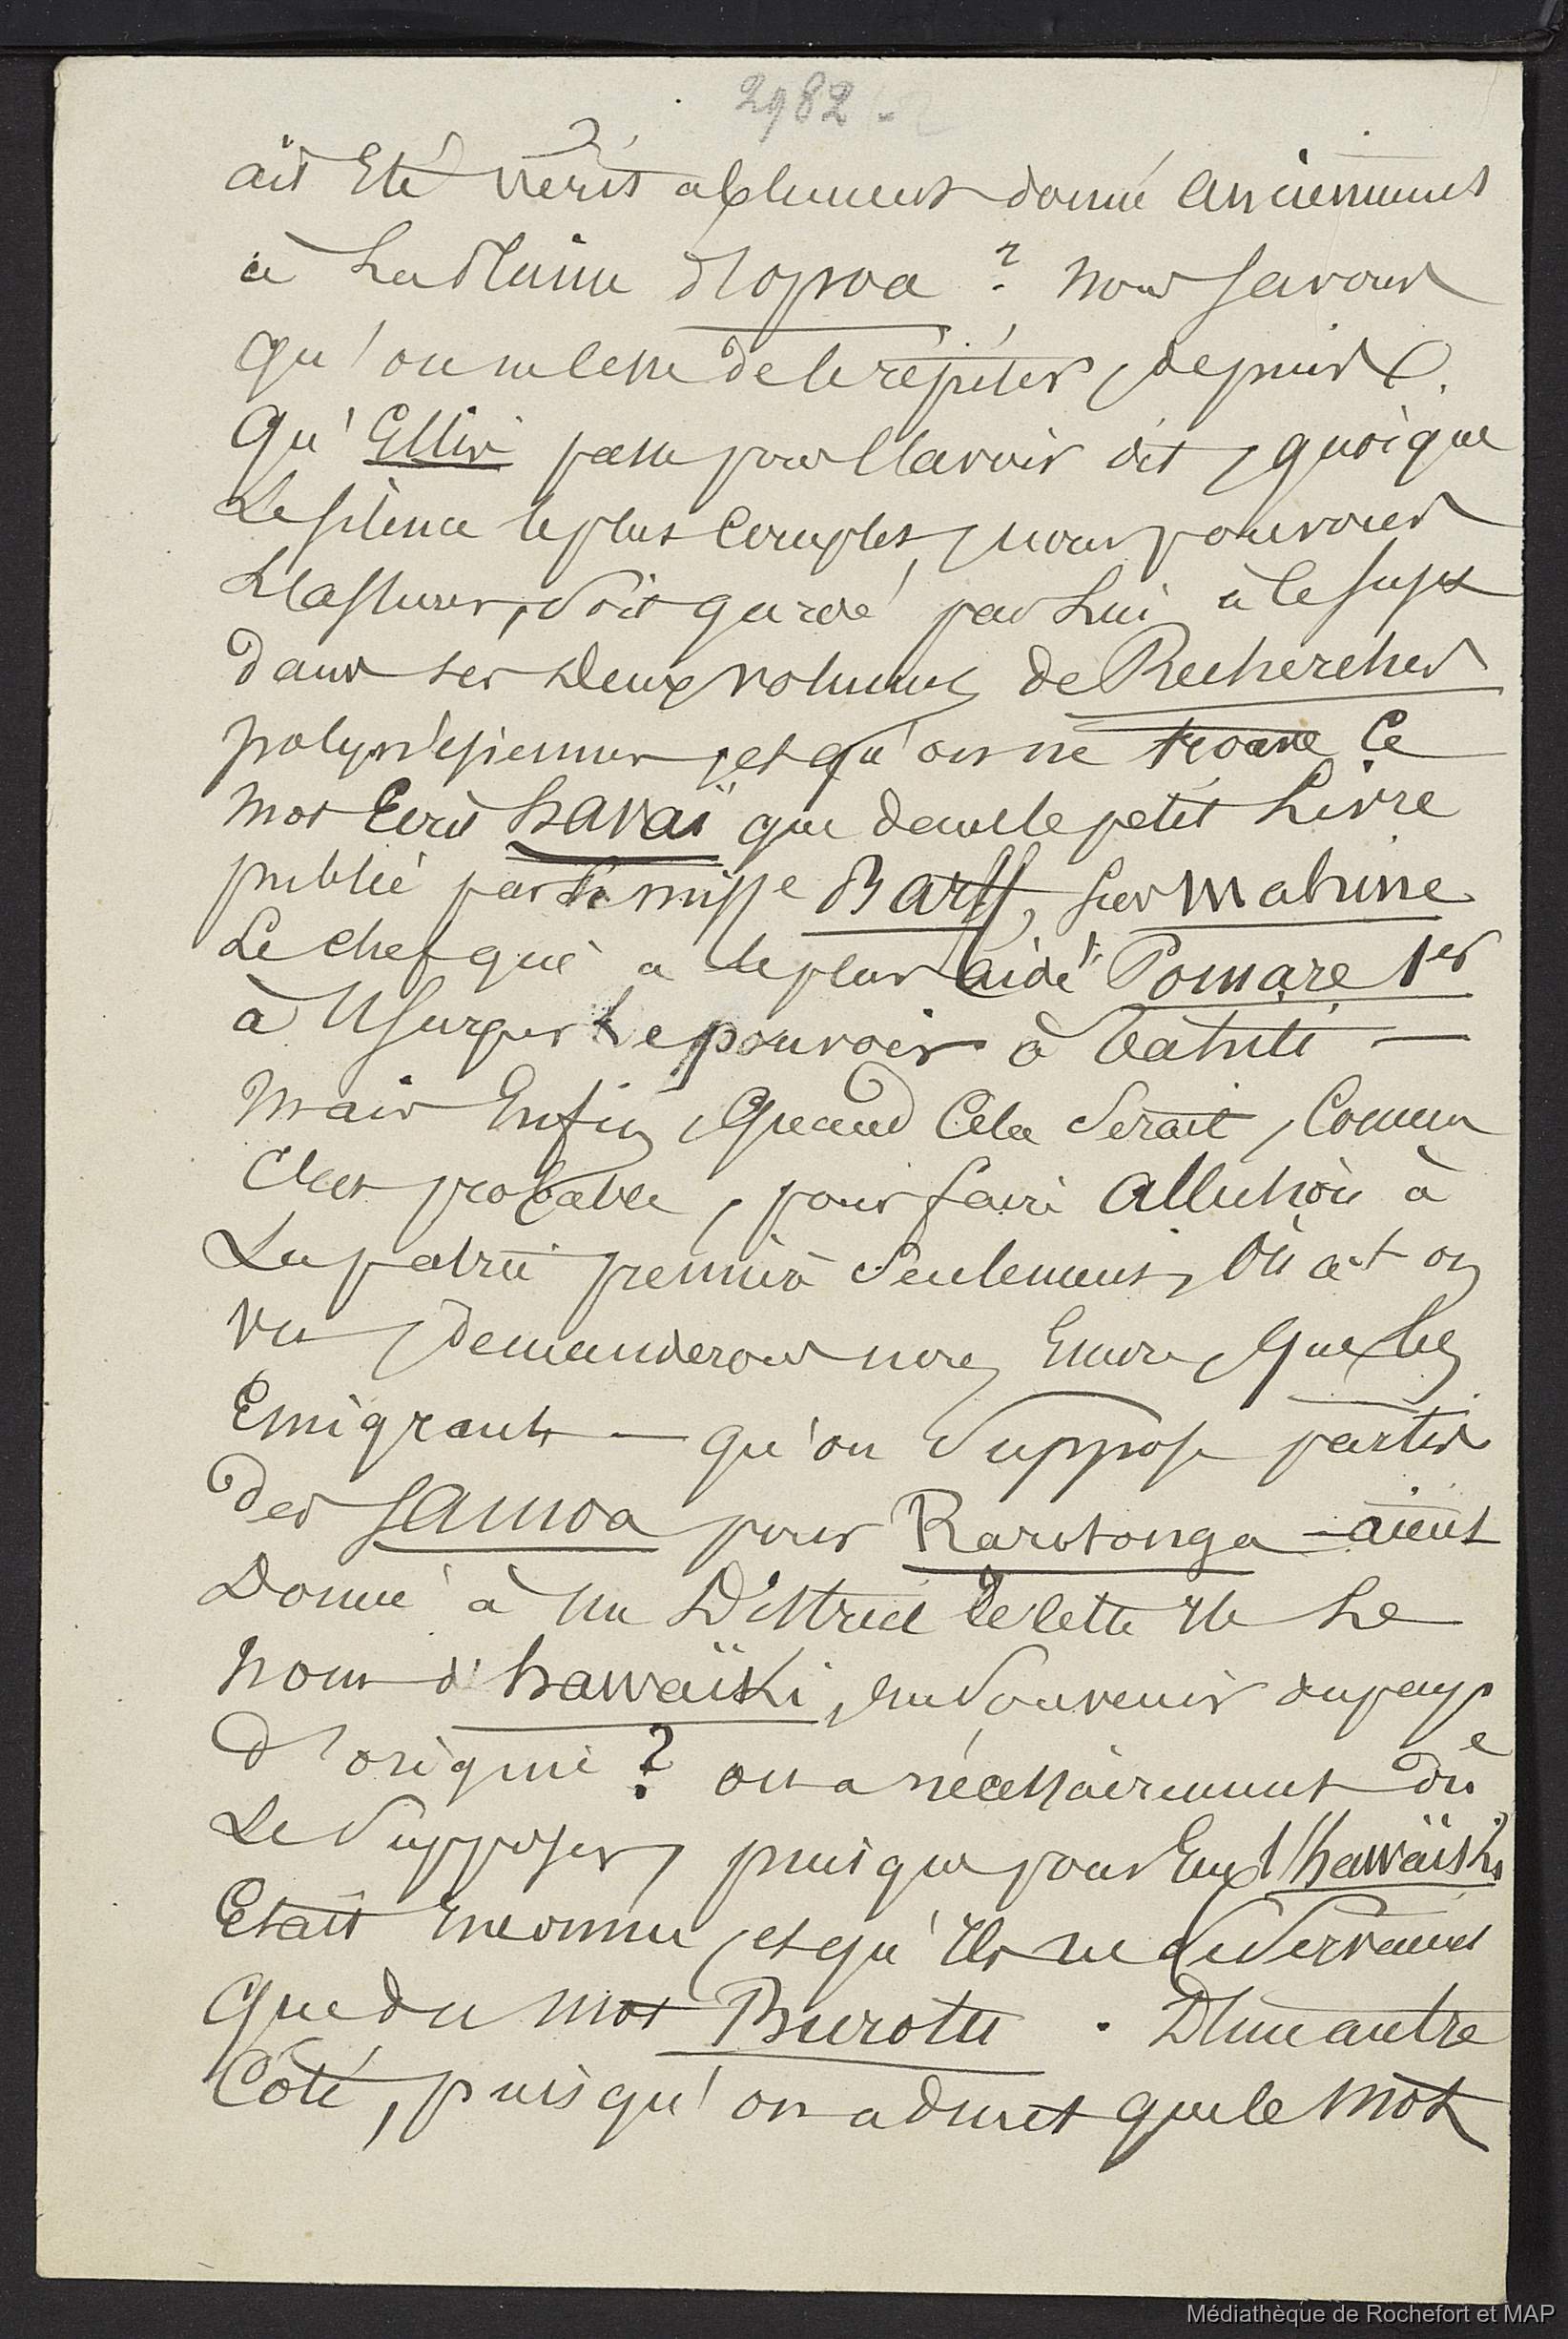 2982.
ait Eté véritablement donné anciennement
à La Plaine d'Opoa ? nous savons
qu'on ne cesse de le répéter, depuis
qu'Ellis passe pour l'avoir dit, quoique
Le silence le plus Complet, nous pouvons
L'assurer, soit gardé par Lui à ce sujet
dans ses Deux volumes de Recherches
polynésiennes, et qu'on ne trouve Ce
mot Ecrit havaï que dans le petit Livre
publié par Le miss^e Barff, sur Mahine
Le chef qui a le plus aidé Pomare 1er
à Usurper Le pouvoir à Tahiti —
Mais Enfin, Quand Cela Serait, Comme
C'est probable, pour faire Allusion à
La patrie première Seulement, Où a-t-on
vu, demanderons nous Encore, que les
Emigrants — qu'on Suppose partis
des Samoa pour Rarotonga — aient
Donné à un District de cette Ile Le
nom d'hawaïki, en Souvenir du pays
d'origine ? on a nécessairement dû
Le Supposer, puisque pour Eux l'hawaïki
Etait Inconnu, et qu'Ils ne Se Servaient
que du mot Burotu . D'une autre
Côté, puisqu'on admet que le mot
Médiathèque de Rochefort et MAP